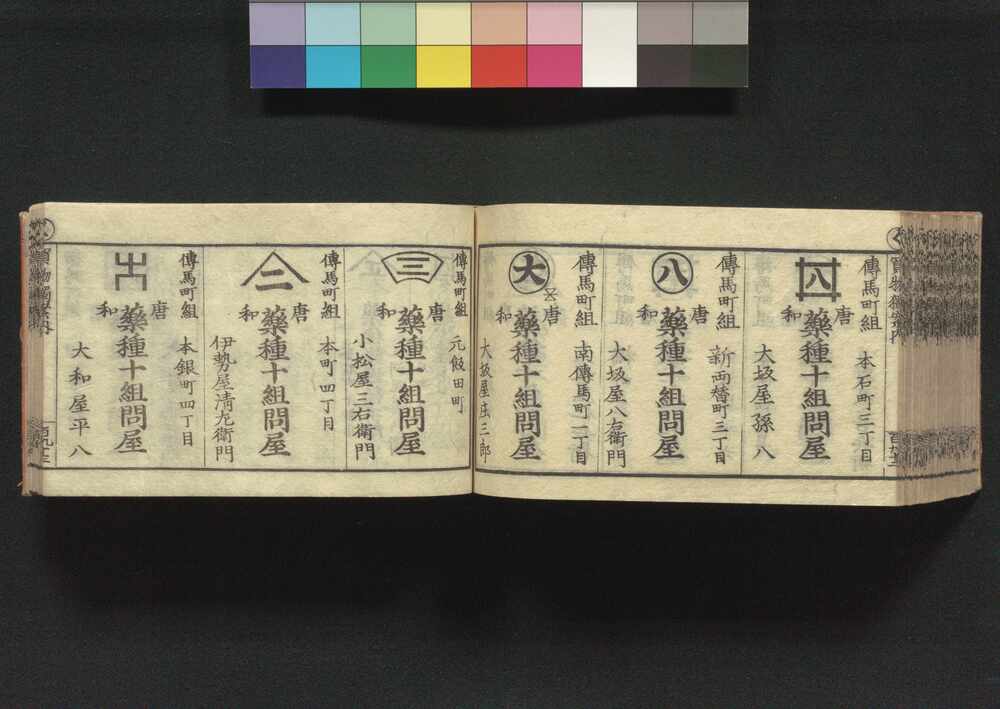 傳馬町組 本石町三丁目
唐和 藥種十組問屋
大坂屋孫八
傳馬町組 新両替町三丁目
八
唐和 藥種十組問屋
大坂屋八右衛門
傳馬町組 南傳馬町一丁目
大
唐和 藥種十組問屋
大坂屋庄三郎
傳馬町組 元飯田町
三
唐和 藥種十組問屋
小松屋三右衛門
傳馬町組 本町四丁目
二
唐和 藥種十組問屋
伊勢屋清左衛門
傳馬町組 本銀町四丁目
唐和 藥種十組問屋
大和屋平八